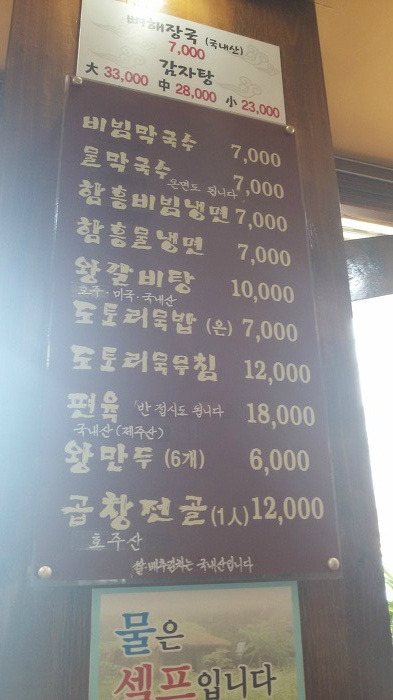 뼈해장국 (국내산)
7,000
감자탕
大 33,000 中 28,000 小 23,000
비빔막국수 7,000
물막국수 7,000
온면도 됩니다
함흥비빔냉면 7,000
함흥물냉면 7,000
왕갈비탕 10,000
호주·미국·국내산
도토리묵밥 (온) 7,000
도토리묵무침 12,000
편육 반 접시도 됩니다 18,000
국내산 (제주산)
왕만두 (6개) 6,000
곱창전골 (1人) 12,000
호주산
쌀·배추김치는 국내산입니다
물은
셀프입니다